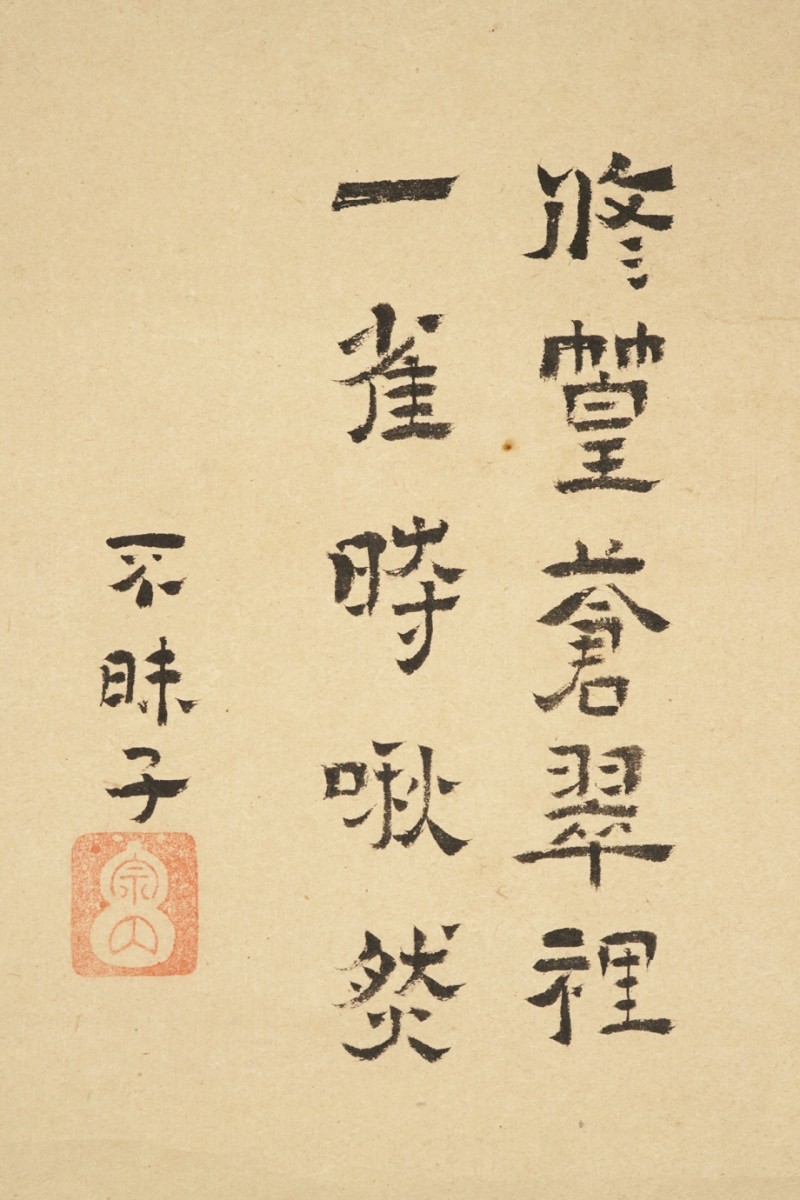 脩篁蒼翠裡
一雀時啾然
不昧子
宗内